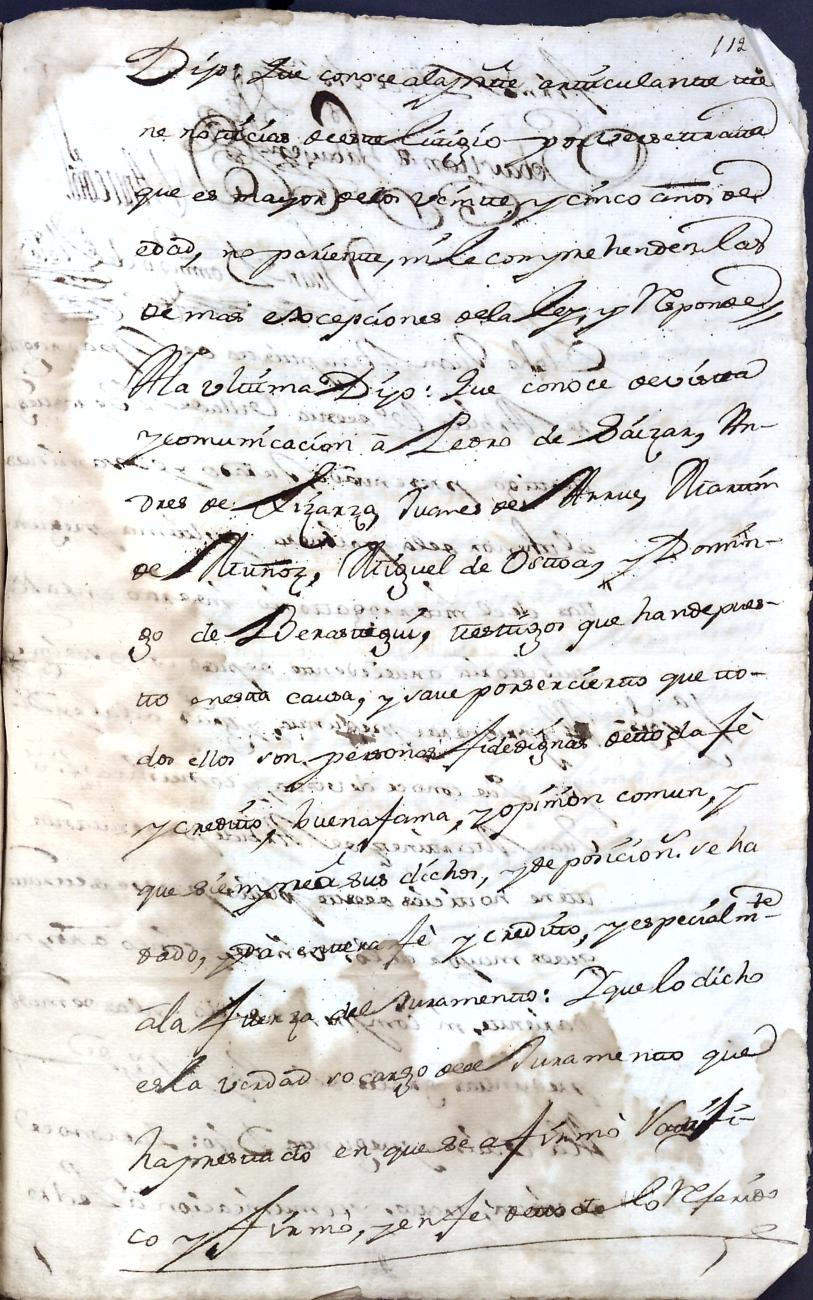 112
Dijo: Que conoce a la parte articulante tie
ne noticias de este litigio por verse tratar
que es mayor de los veinte y cinco años de
edad, no pariente, ni le comprehenden las
de mas excepciones de la ley, y responde
A la vltima Dijo: Que conoce de vista
y comunicacion â Pedro de Sáizar, An-
dres de Lizarza, Juanes de Arrue, Martin
de Muñoz, Miguel de Ostoa, y Domin-
go de Berastegui, testigos que han depues-
to en esta causa, y save por ser cierto que to-
dos ellos son personas fidedignas de toda fè
y credito, buena fama, y opinion comun, y
que siempre â sus dichos, y deposicion. se ha
dado, y da entera fè y credito, y especialmte
â la fuerza del Juramento: Y que lo dicho
es la verdad so cargo de el Juramento que
ha prestado en que se afirmò Ratifi-
co y firmò, y en fè de todo lo referido